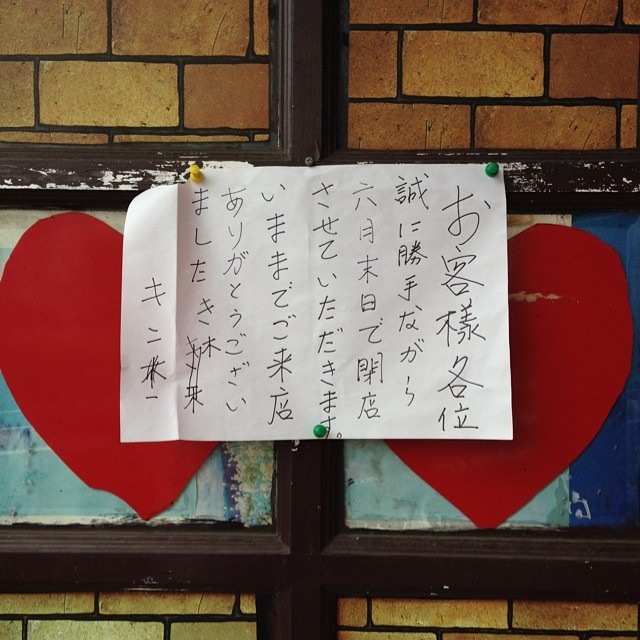 お客様各位
誠に勝手ながら
六月末日で閉店
させていただきます。
いままでご来店
ありがとうござい
ました